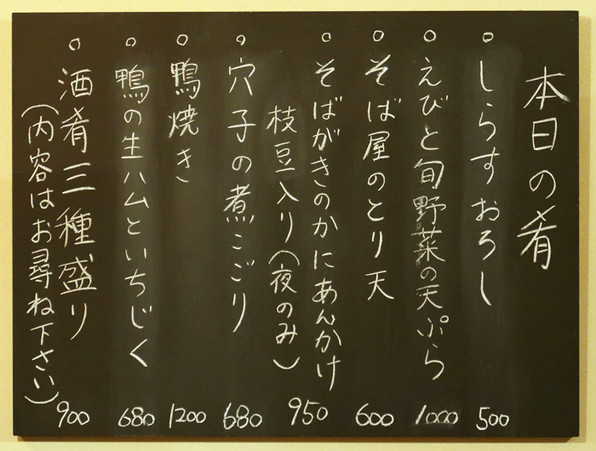 本日の肴
○しらすおろし 500
○えびと旬野菜の天ぷら 1000
○そば屋のとり天 600
○そばがきのかにあんかけ
枝豆入り(夜のみ) 950
○穴子の煮こごり 680
○鴨焼き 1200
○鴨の生ハムといちじく 680
○酒肴三種盛り
(内容はお尋ね下さい) 900